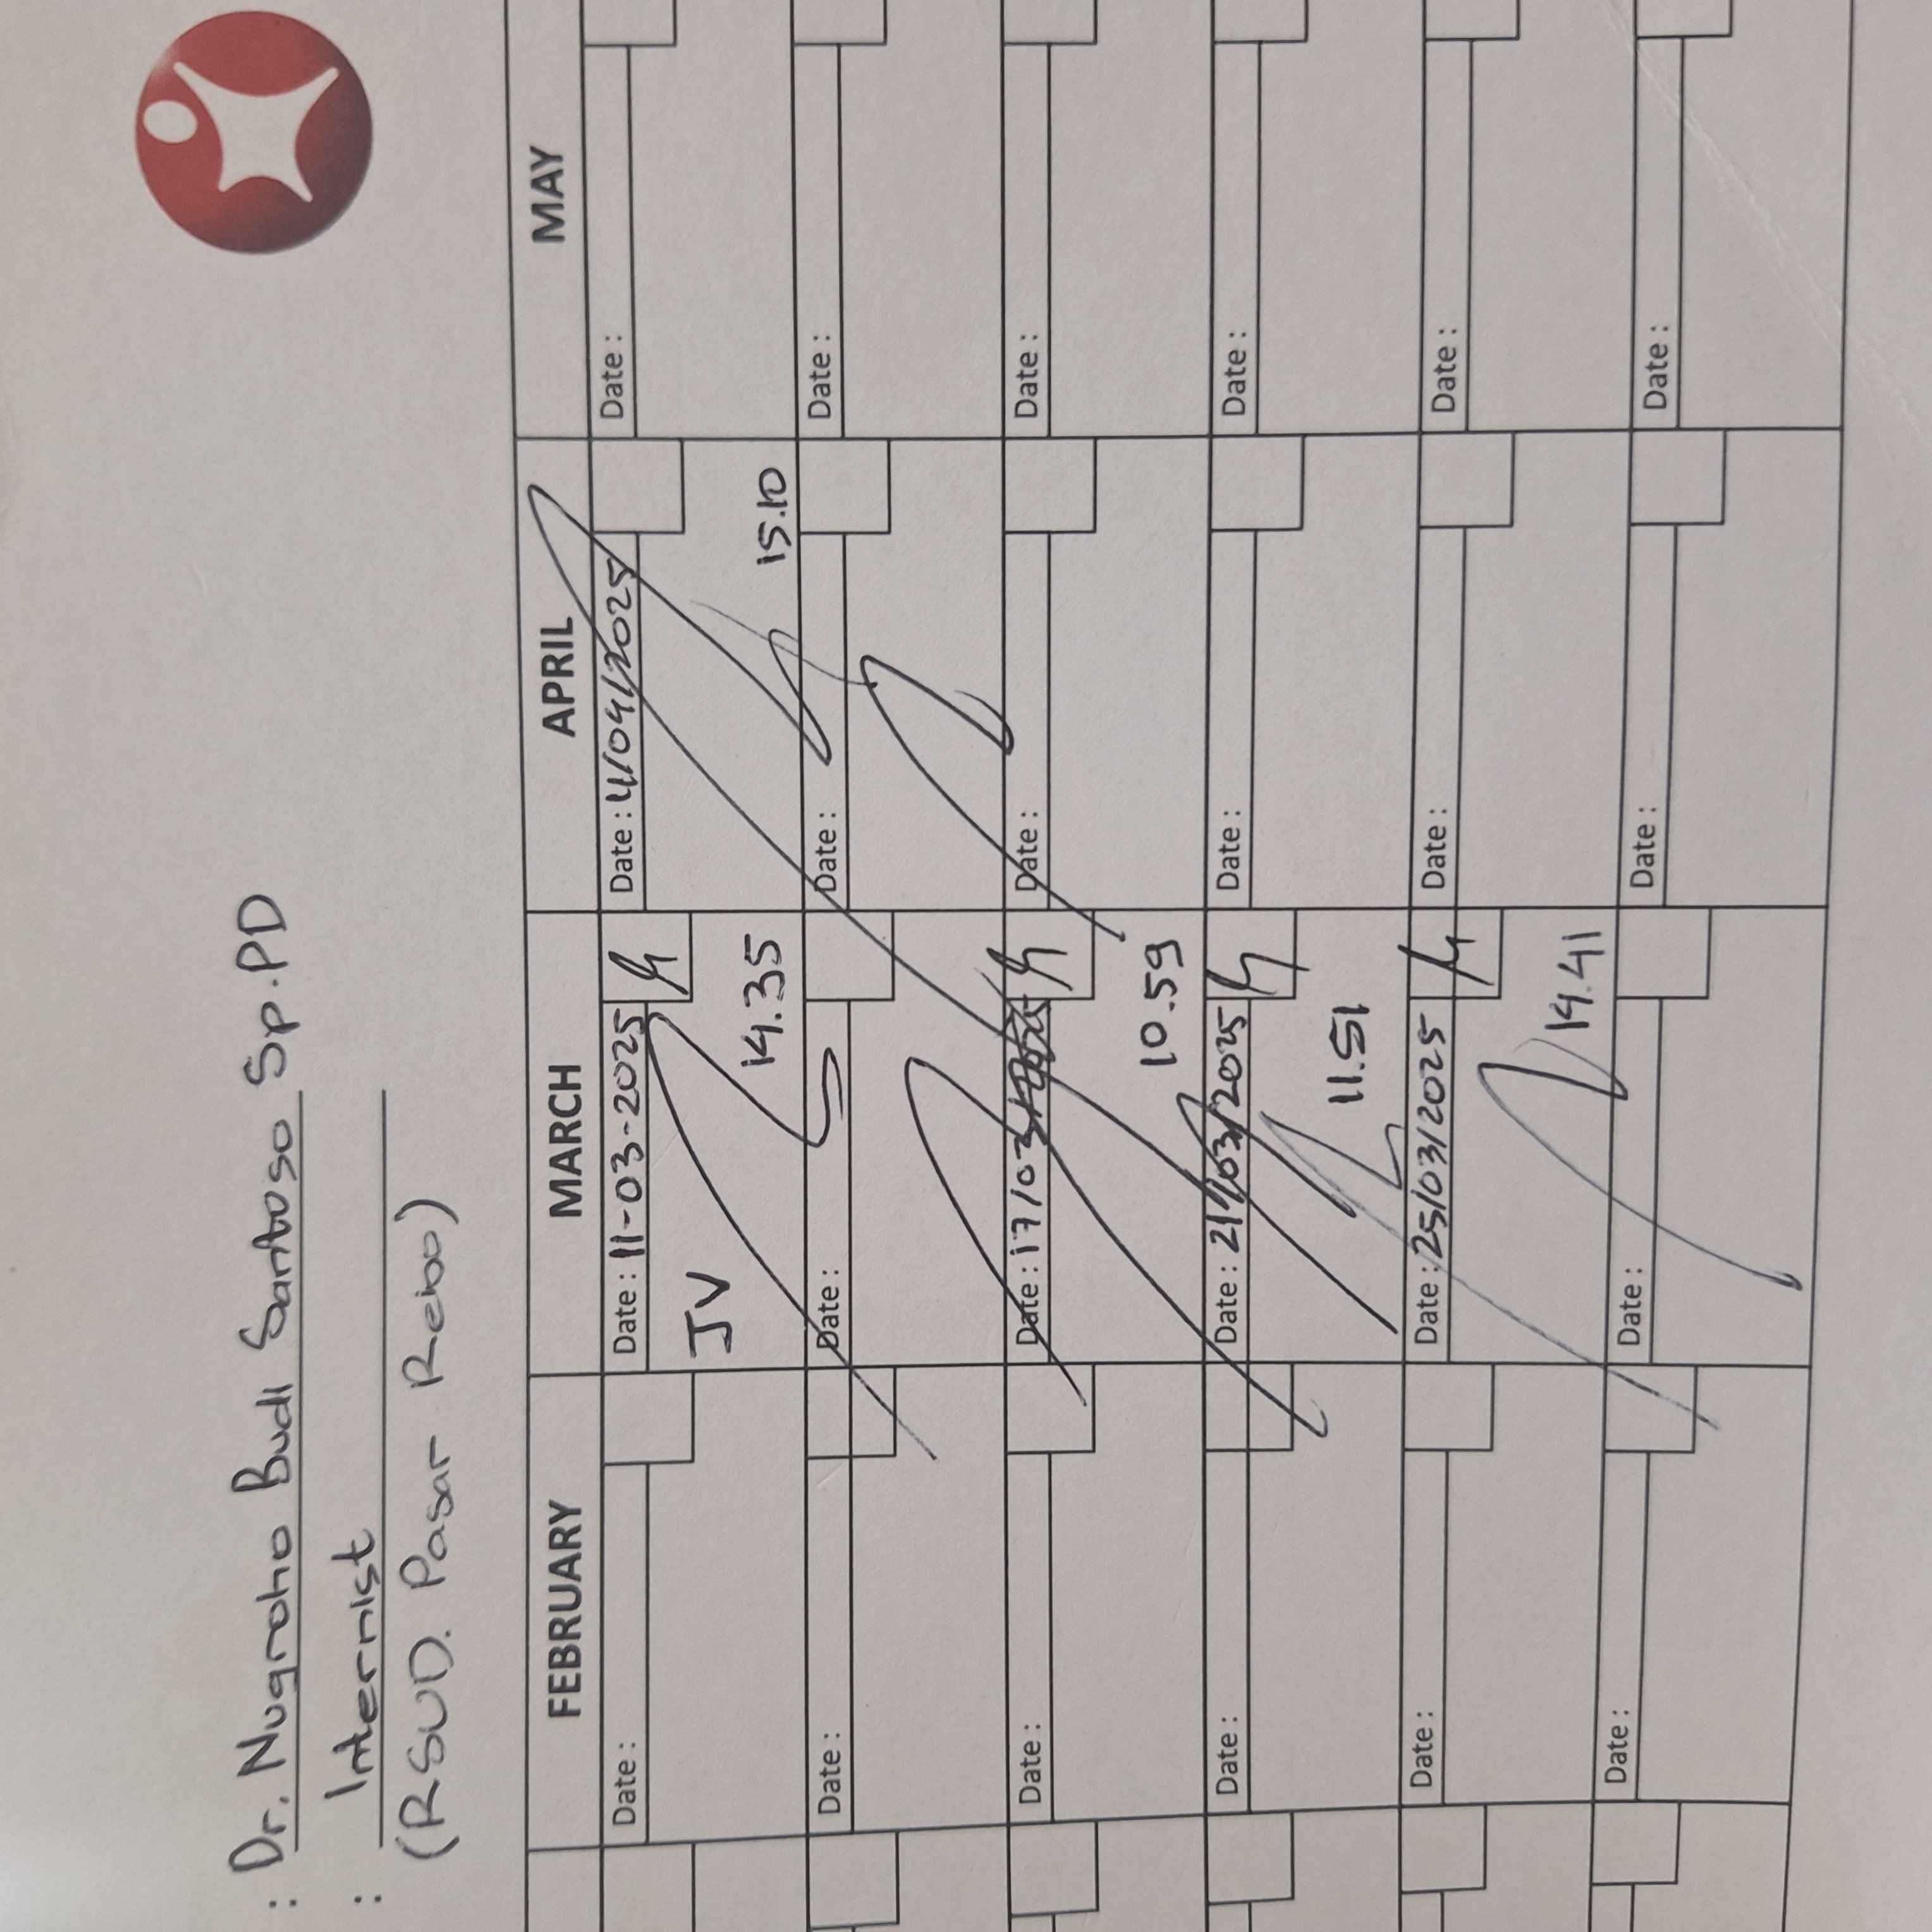 : Dr. Nugroho Budi Santoso Sp.PD
: Internist
(RSUD. Pasar Rebo)
FEBRUARY MARCH APRIL MAY
Date : Date : 11-03-2025 Date : 4/04/2025 Date :
JV 14.35 15.10
Date : Date : Date : Date :
Date : Date : 17/03/2025 Date : Date :
10.59
Date : Date : 21/03/2025 Date : Date :
11.51
Date : Date : 25/03/2025 Date : Date :
14.41
Date : Date : Date : Date :